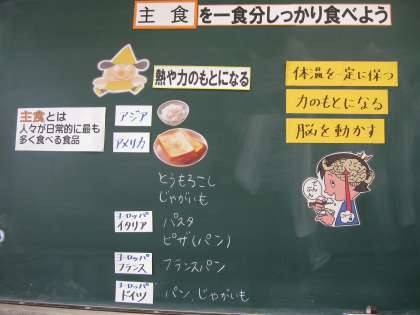 主食を一食分しっかり食べよう
熱や力のもとになる
体温を一定に保つ
力のもとになる
脳を動かす
主食とは
人々が日常的に最も
多く食べる食品
アジア
アメリカ
とうもろこし
じゃがいも
ヨーロッパ
イタリア
パスタ
ピザ(パン)
ヨーロッパ
フランス
フランスパン
ヨーロッパ
ドイツ
パン、じゃがいも